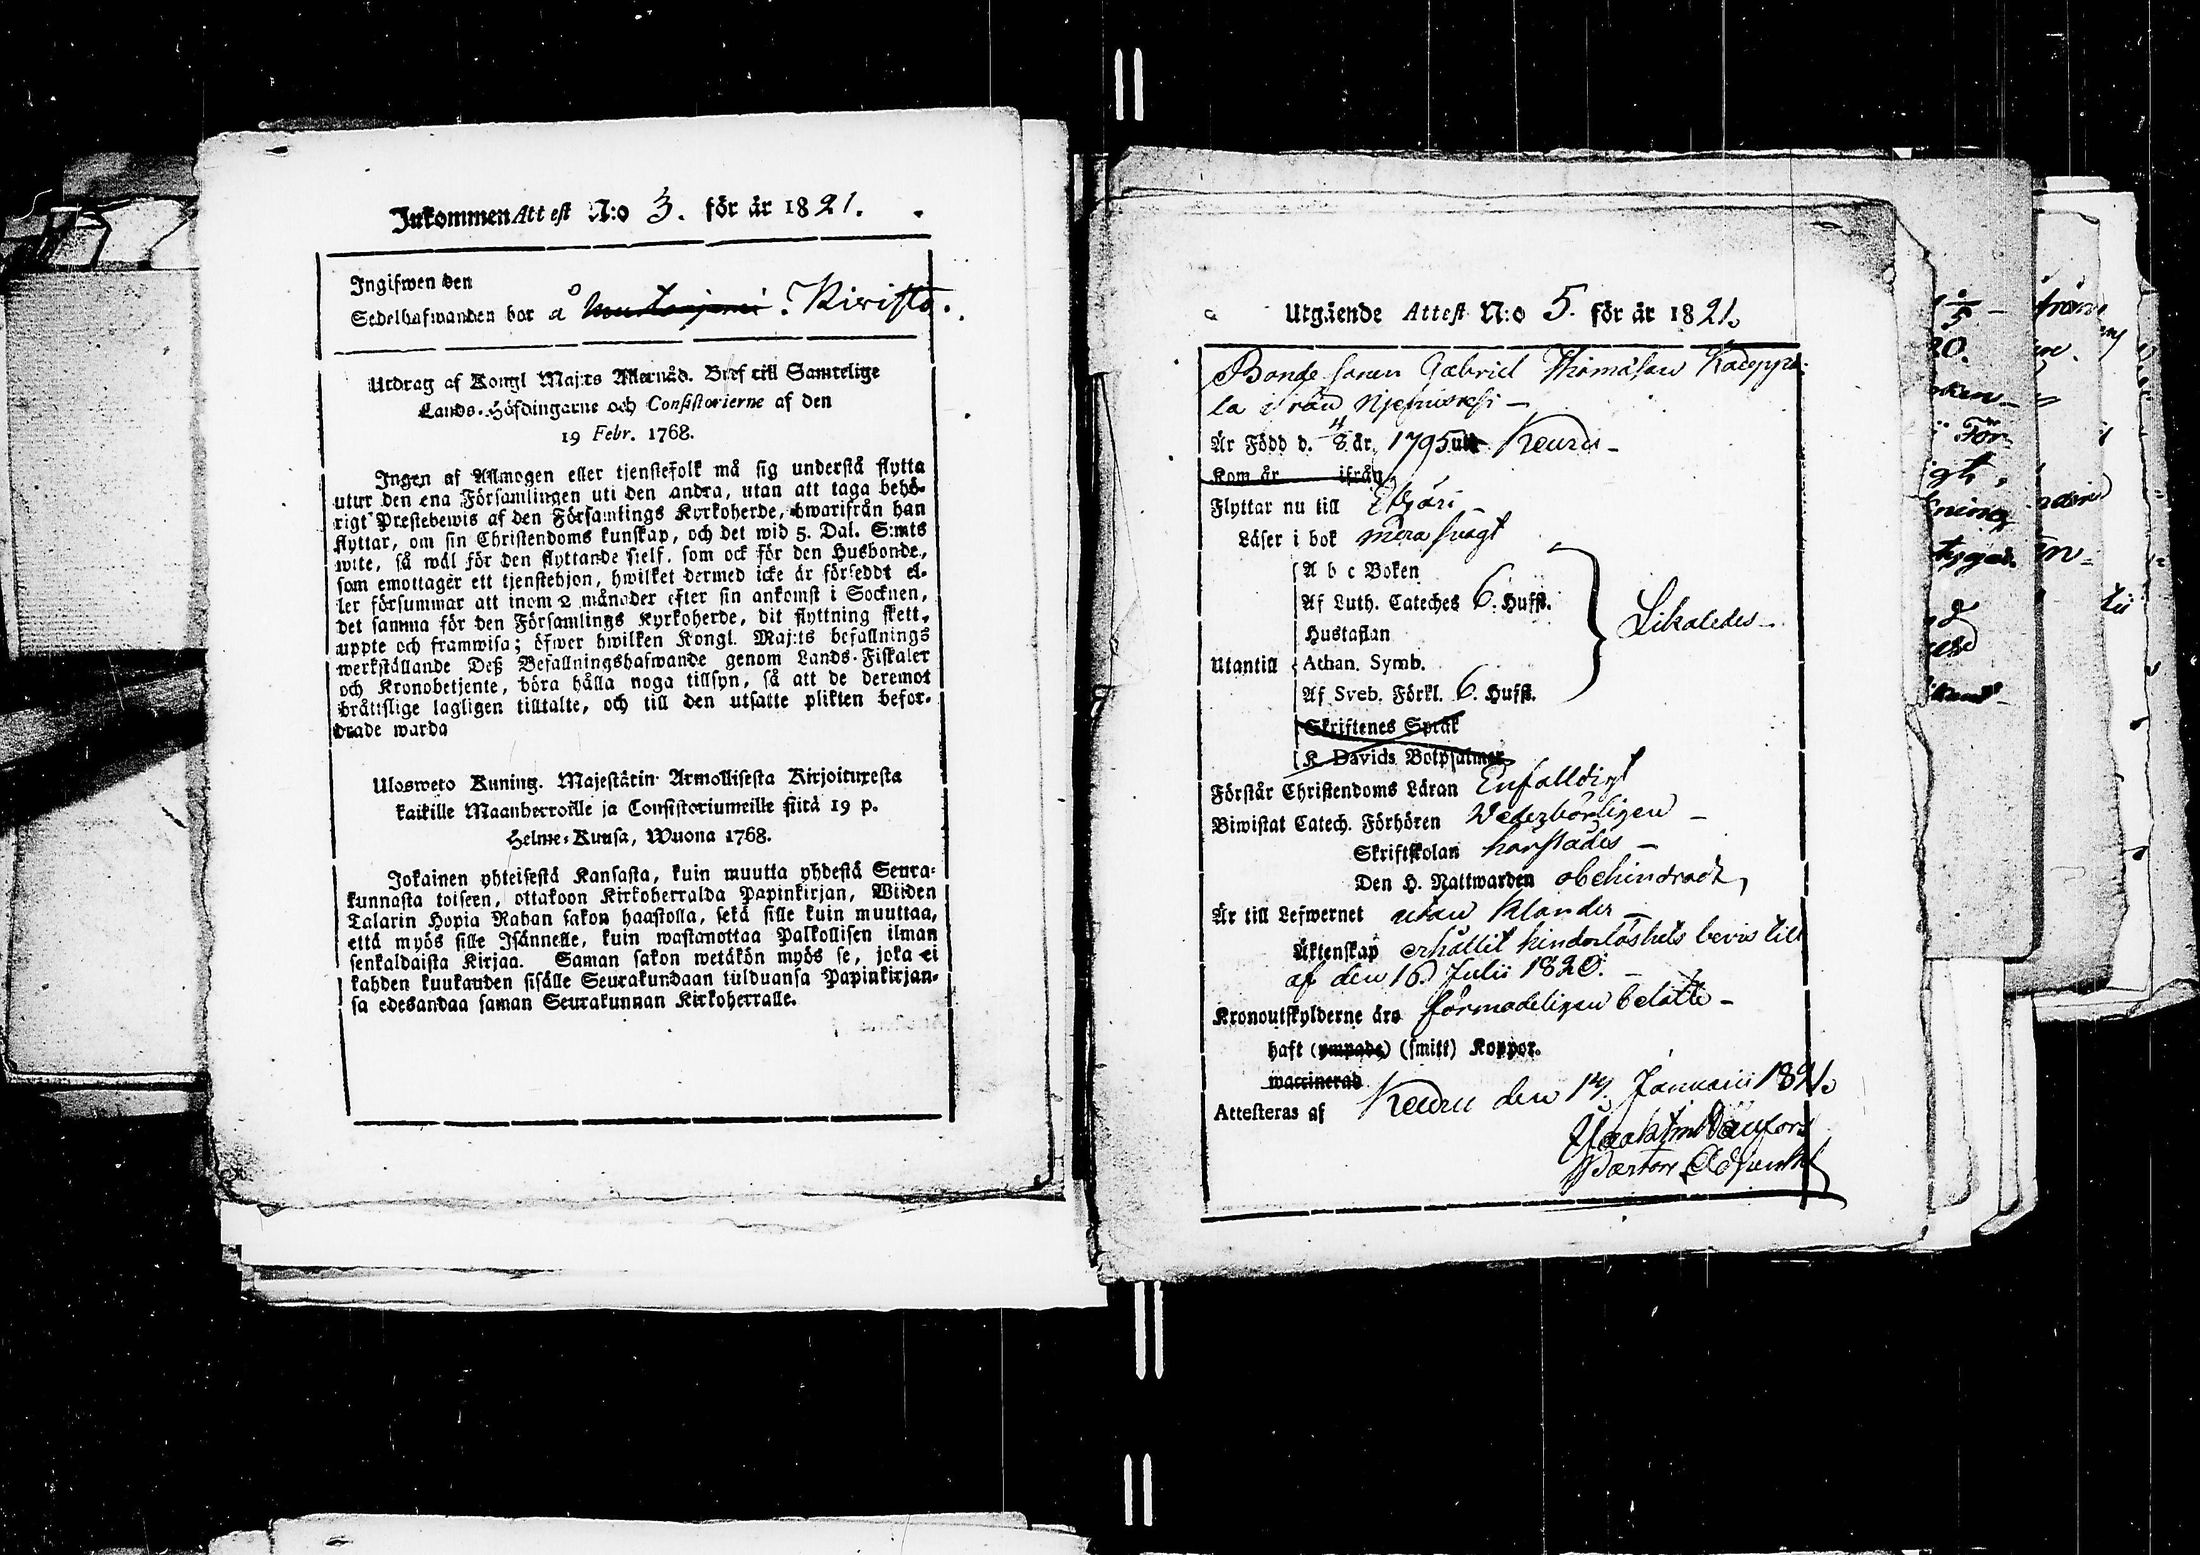 Inkommen Attest N:o 3. för år 1821.
Ingifwen den
Sedelhafwanden bor å Kiristo.
Utdrag af Kongl Maj:ts Allernåd. Bref till Samtelige
Lands-Höfdingarne och Consistorierne af den
19 Febr. 1768.
Ingen af Allmogen eller tjenstefolk må sig understå flytta
utur den ena Församlingen uti den andra, utan att taga behö-
rigt Prestebewis af den Församlings Kyrkoherde, hwarifrån han
flyttar, om sin Christendoms kunskap, och det wid 5. Dal. S:mts
wite, så wäl för den flyttande sielf, som ock för den Husbonde,
som emottager ett tjenstehjon, hwilket dermed icke är förseddt el-
ler försummar att inom 2 månader efter sin ankomst i Socknen,
det samma för den Församlings Kyrkoherde, dit flyttning skett,
uppte och framwisa; öfwer hwilken Kongl. Maj:ts befallnings
werkställande Deß Befallningshafwande genom Lands-Fiskaler
och Kronobetjente, böra hålla noga tillsyn, så att de deremot
bråttslige lagligen tilltalte, och till den utsatte plikten befor-
drade warda
Ulosweto Kuning. Majestätin Armollisesta Kirjoituxesta
kaikille Maanherroille ja Consistoriumeille siitä 19 p.
Helme-Kuusa, Wuona 1768.
Jokainen yhteisestä Kansasta, kuin muutta yhdestä Seura-
kunnasta toiseen, ottakoon Kirkoherralda Papinkirjan, Wiiden
Talarin Hopia Rahan sakon haastolla, sekä sille kuin muuttaa,
että myös sille Isännelle, kuin wastanottaa Palkollisen ilman
senkaldaista Kirjaa. Saman sakon wetäkön myös se, joka ei
kahden kuukauden sisälle Seurakundaan tulduansa Papinkirjan-
sa edesandaa saman Seurakunnan Kirkoherralle.
Utgående Attest N:o 5. för år 1821.
Bonde sonen Gabriel Thomasson Kaleppa-
la ifrån
Är Född d. 8/4 år 1795 uti Keuru
Kom år ifrån
Flyttar nu till Etzäri
Läser i bok mera svagt
A b c Boken
Af Luth. Cateches 6. Hufst.
Hustaflan
Likaledes
Utantill Athan. Symb.
Af Sveb. Förkl. 6. Hufst.
Skriftenes Språk
K Davids Botpsalmer
Förstår Christendoms Läran Enfalldigt
Biwistat Catech. Förhören Vederbörligen
Skriftskolan
Den H. Nattwarden obehindradt,
Är till Lefwernet utan klander
Äktenskap erhållit hinderlöshets bevis till
af den 16. Julii 1820.
Kronoutskylderne äro förmodeligen betalte
haft (ympade) (smitt) Koppor.
waccinerad
Attesteras af Keuru den 14 Januarii 1821.